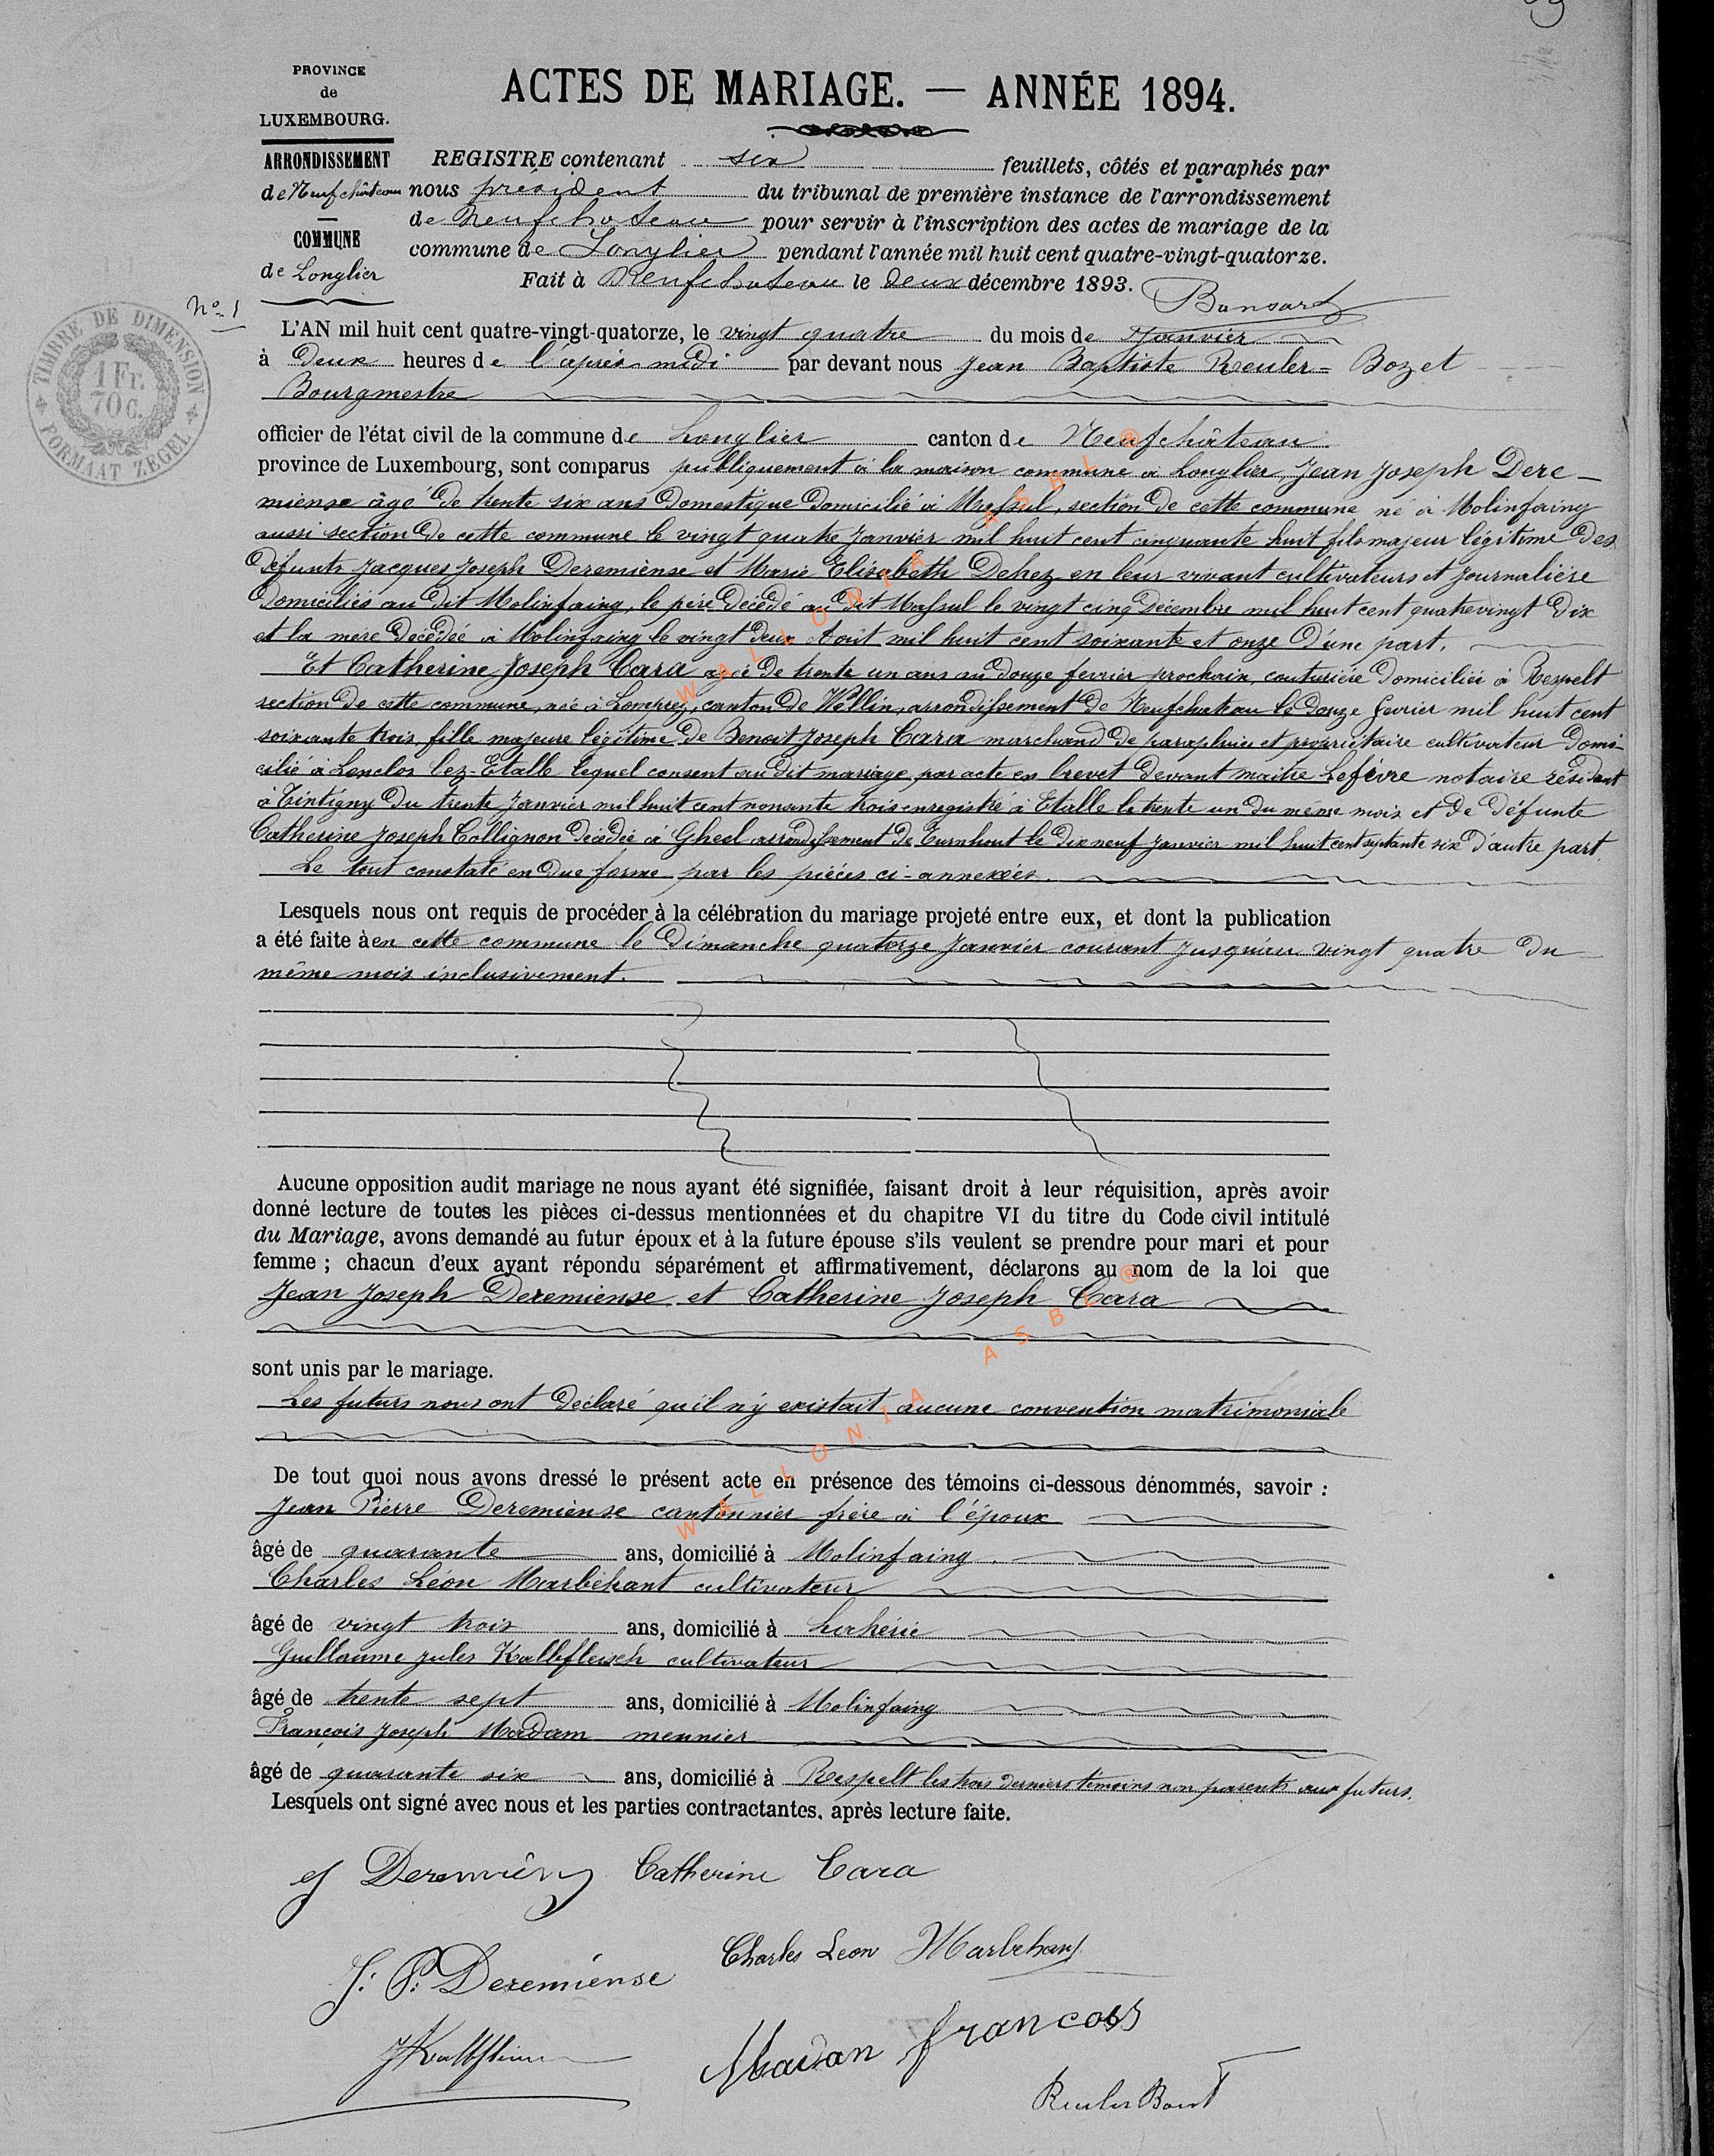 PROVINCE
de
LUXEMBOURG.
ARRONDISSEMENT
de Neufchâteau
COMMUNE
de Longlier
N° 1
TIMBRE DE DIMENSION
1 Fr.
70 C.
FORMAAT ZEGEL
ACTES DE MARIAGE. — ANNÉE 1894.
REGISTRE contenant six feuillets, côtés et paraphés par
nous président du tribunal de première instance de l'arrondissement
de Neufchateau pour servir à l'inscription des actes de mariage de la
commune de Longlier pendant l'année mil huit cent quatre-vingt-quatorze.
Fait à Neufchateau le deux décembre 1893.
L'AN mil huit cent quatre-vingt-quatorze, le vingt quatre du mois de Janvier
à deux heures de l'après-midi par devant nous Jean Baptiste Reuler = Bozet
Bourgmestre
officier de l'état civil de la commune de Longlier canton de Neufchâteau
province de Luxembourg, sont comparus publiquement à la maison commune à Longlier, Jean Joseph Dere-
miense âgé de trente six ans domestique domicilié à Massul, section de cette commune né à Molinfaing
aussi section de cette commune le vingt quatre Janvier mil huit cent cinquante huit fils majeur légitime des
défunts Jacques Joseph Deremiense et Marie Elisabeth Dehez en leur vivant cultivateurs et journalière
domiciliés au dit Molinfaing, le père décédé au dit Massul le vingt cinq décembre mil huit cent quatrevingt dix
et la mère décédée à Molinfaing le vingt deux Aout mil huit cent soixante et onze d'une part.
Et Catherine Joseph Cara agée de trente un ans au douze fevrier prochain, couturière domiciliée à Respelt
section de cette commune, née à Lomprez, canton de Wellin, arrondissement de Neufchateau le douze fevrier mil huit cent
soixante trois, fille majeure légitime de Benoit Joseph Cara marchand de parapluies et propriétaire cultivateur domi-
cilié à Lenclos lez-Etalle lequel consent au dit mariage par acte en brevet devant maitre Lefèvre notaire résidant
à Tintigny du trente Janvier mil huit cent nonante trois enregistré à Etalle le trente un du même mois et de défunte
Catherine Joseph Collignon décédée à Gheel arrondissement de Turnhout le dix neuf Janvier mil huit cent septante six d'autre part.
Le tout constaté en due forme par les pièces ci-annexées.
Lesquels nous ont requis de procéder à la célébration du mariage projeté entre eux, et dont la publication
a été faite à en cette commune le dimanche quatorze Janvier courant jusqu'au vingt quatre du
même mois inclusivement.
Aucune opposition audit mariage ne nous ayant été signifiée, faisant droit à leur réquisition, après avoir
donné lecture de toutes les pièces ci-dessus mentionnées et du chapitre VI du titre du Code civil intitulé
du Mariage, avons demandé au futur époux et à la future épouse s'ils veulent se prendre pour mari et pour
femme ; chacun d'eux ayant répondu séparément et affirmativement, déclarons au nom de la loi que
Jean Joseph Deremiense et Catherine Joseph Cara
sont unis par le mariage.
Les futurs nous ont déclaré qu'il n'y existait aucune convention matrimoniale
De tout quoi nous avons dressé le présent acte en présence des témoins ci-dessous dénommés, savoir :
Jean Pierre Deremiense cantonnier frère à l'époux
âgé de quarante ans, domicilié à Molinfaing.
Charles Léon Marbehant cultivateur
âgé de vingt trois ans, domicilié à Lahérie
Guillaume Jules Kalbfleisch cultivateur
âgé de trente sept ans, domicilié à Molinfaing
François Joseph Madam meunier
âgé de quarante six ans, domicilié à Respelt les trois derniers témoins non parents aux futurs.
Lesquels ont signé avec nous et les parties contractantes, après lecture faite.
Catherine Cara
J. P. Deremiense
Charles Leon Marbehant
Madan francois
WALLONIA ASBL ®
WALLONIA ASBL ®